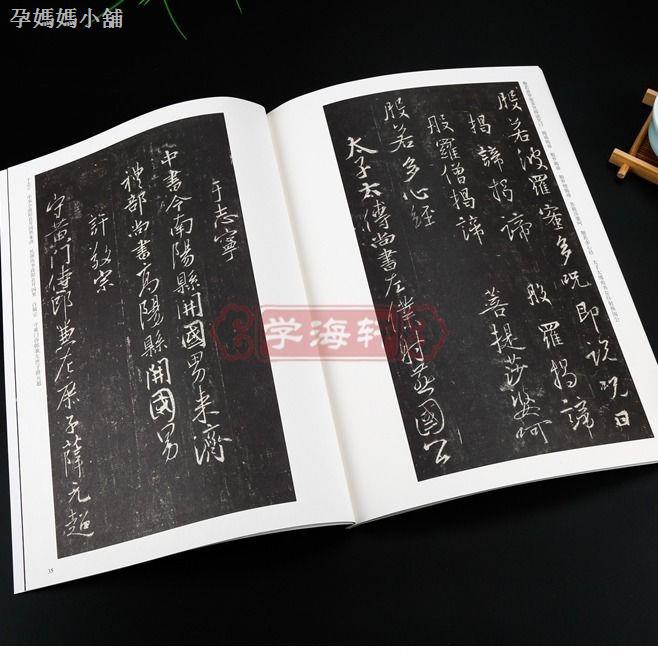 孕媽媽小舖
般若波羅蜜多咒即説咒曰
揭諦揭諦 般羅揭諦
般羅僧揭諦 菩提莎婆呵
般若多心經
太子太傅尚書左僕射燕國公
于志寧
中書令南陽縣開國男来濟
禮部尚書高陽縣開國男
許敬宗
守黄門侍郎兼左庶子薛元超
35
学海轩